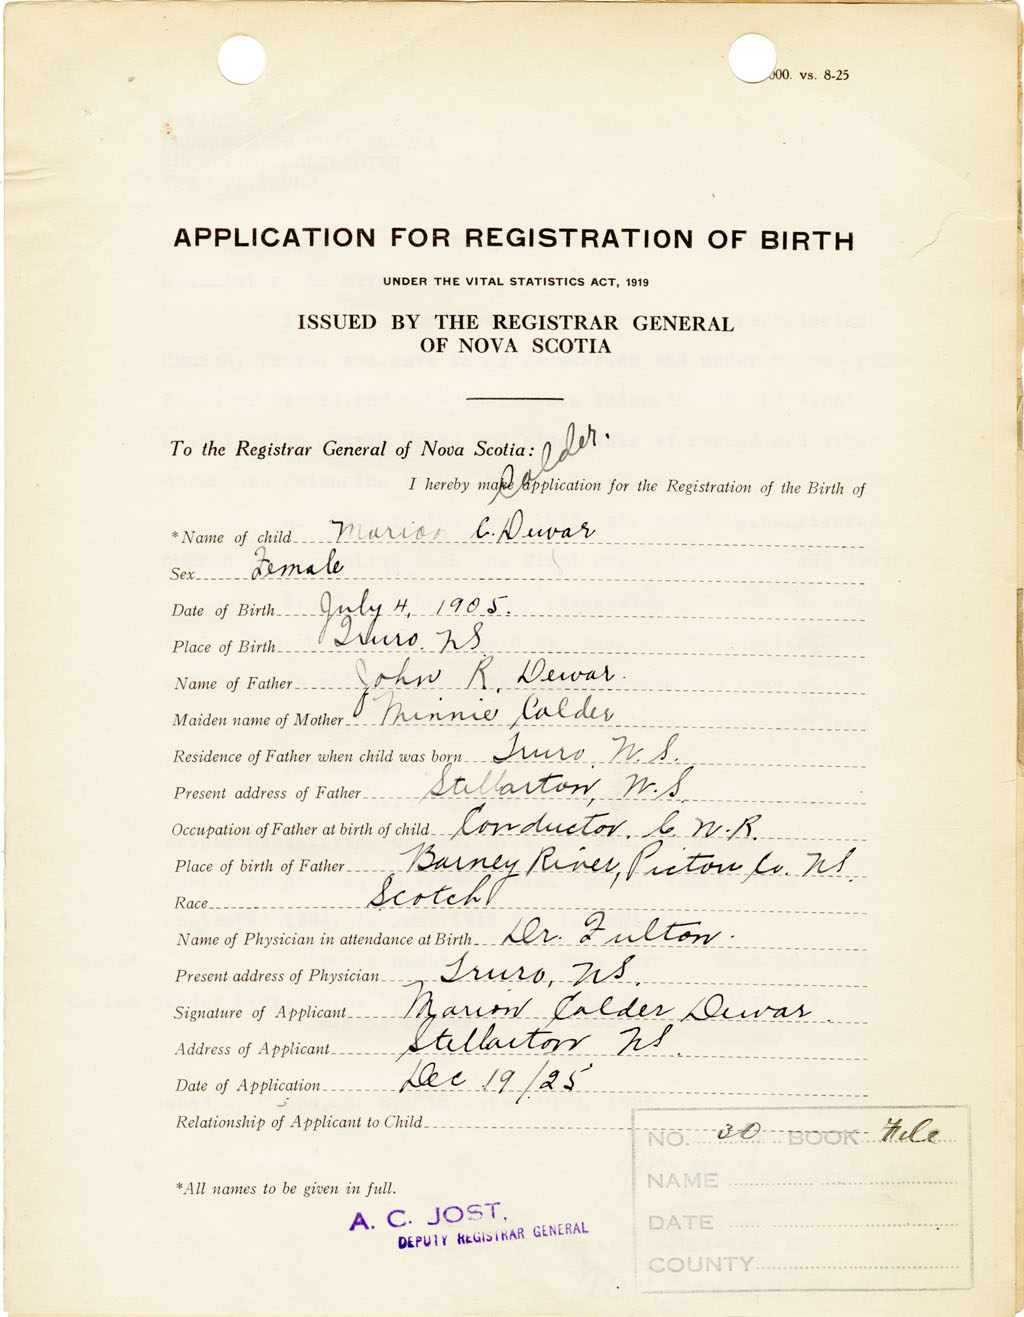 000. vs. 8-25
APPLICATION FOR REGISTRATION OF BIRTH
UNDER THE VITAL STATISTICS ACT, 1919
ISSUED BY THE REGISTRAR GENERAL
OF NOVA SCOTIA
To the Registrar General of Nova Scotia:
Calder.
I hereby make application for the Registration of the Birth of
*Name of child Marion C. Dewar
Sex Female
Date of Birth July 4, 1905.
Place of Birth Truro. NS
Name of Father John R. Dewar.
Maiden name of Mother Minnie Calder
Residence of Father when child was born Truro, N. S.
Present address of Father Stellarton, N. S.
Occupation of Father at birth of child Conductor. C. N. R.
Place of birth of Father Barney River, Pictou Co. NS.
Race Scotch
Name of Physician in attendance at Birth Dr. Fulton.
Present address of Physician Truro, NS.
Signature of Applicant Marion Calder Dewar.
Address of Applicant Stellarton NS.
Date of Application Dec 19/25
Relationship of Applicant to Child
NO. 30 BOOK File
NAME
DATE
COUNTY
*All names to be given in full.
A. C. JOST,
DEPUTY REGISTRAR GENERAL